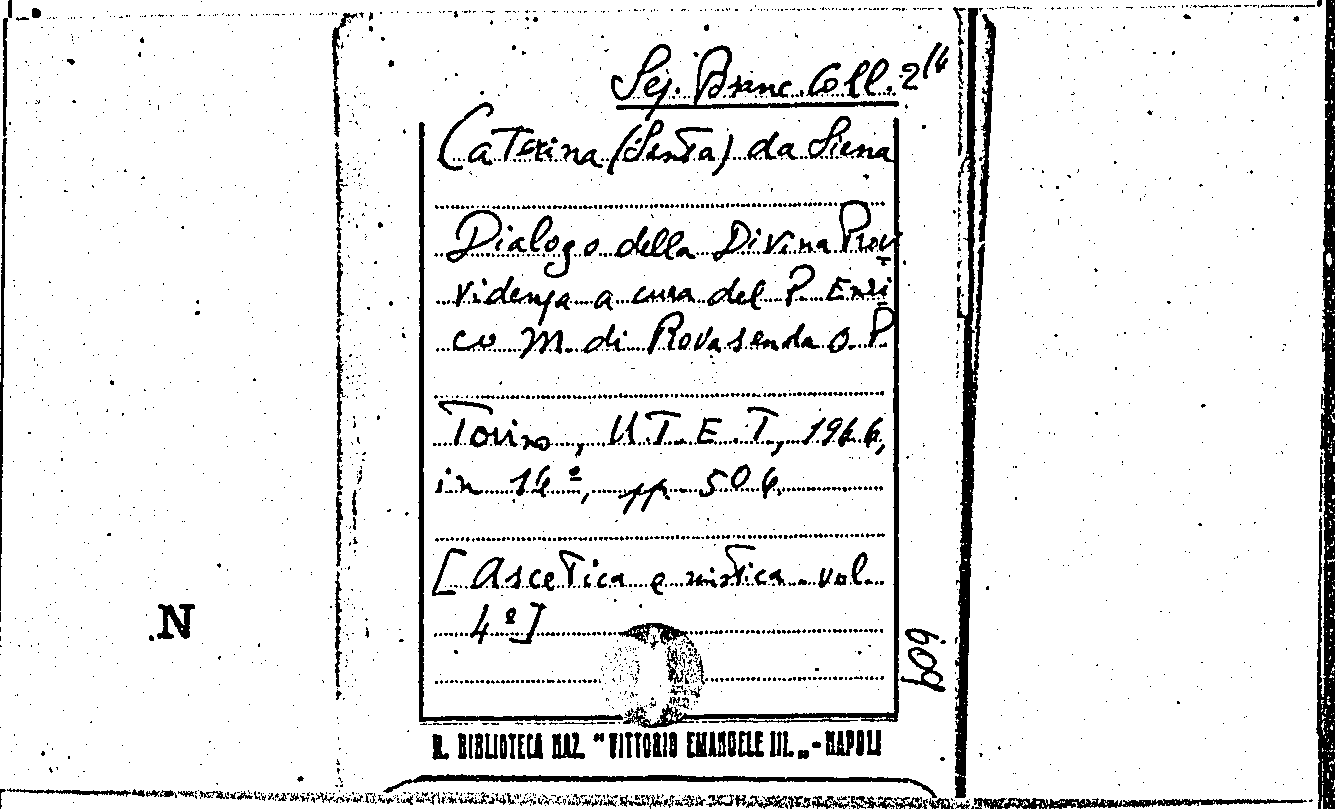 Sej. Branc. Coll. 2/4
Caterina (Santa) da Siena
Dialogo della Divina Prov
videnza a cura del P. Enri
co M. di Rovasenda O.P.
Torino, U.T.E.T, 1966,
in 16º, pp 506
[Ascetica e mistica. vol.
4º]
N
609
R. BIBLIOTECA NAZ. "VITTORIO EMANUELE III. „ - NAPOLI